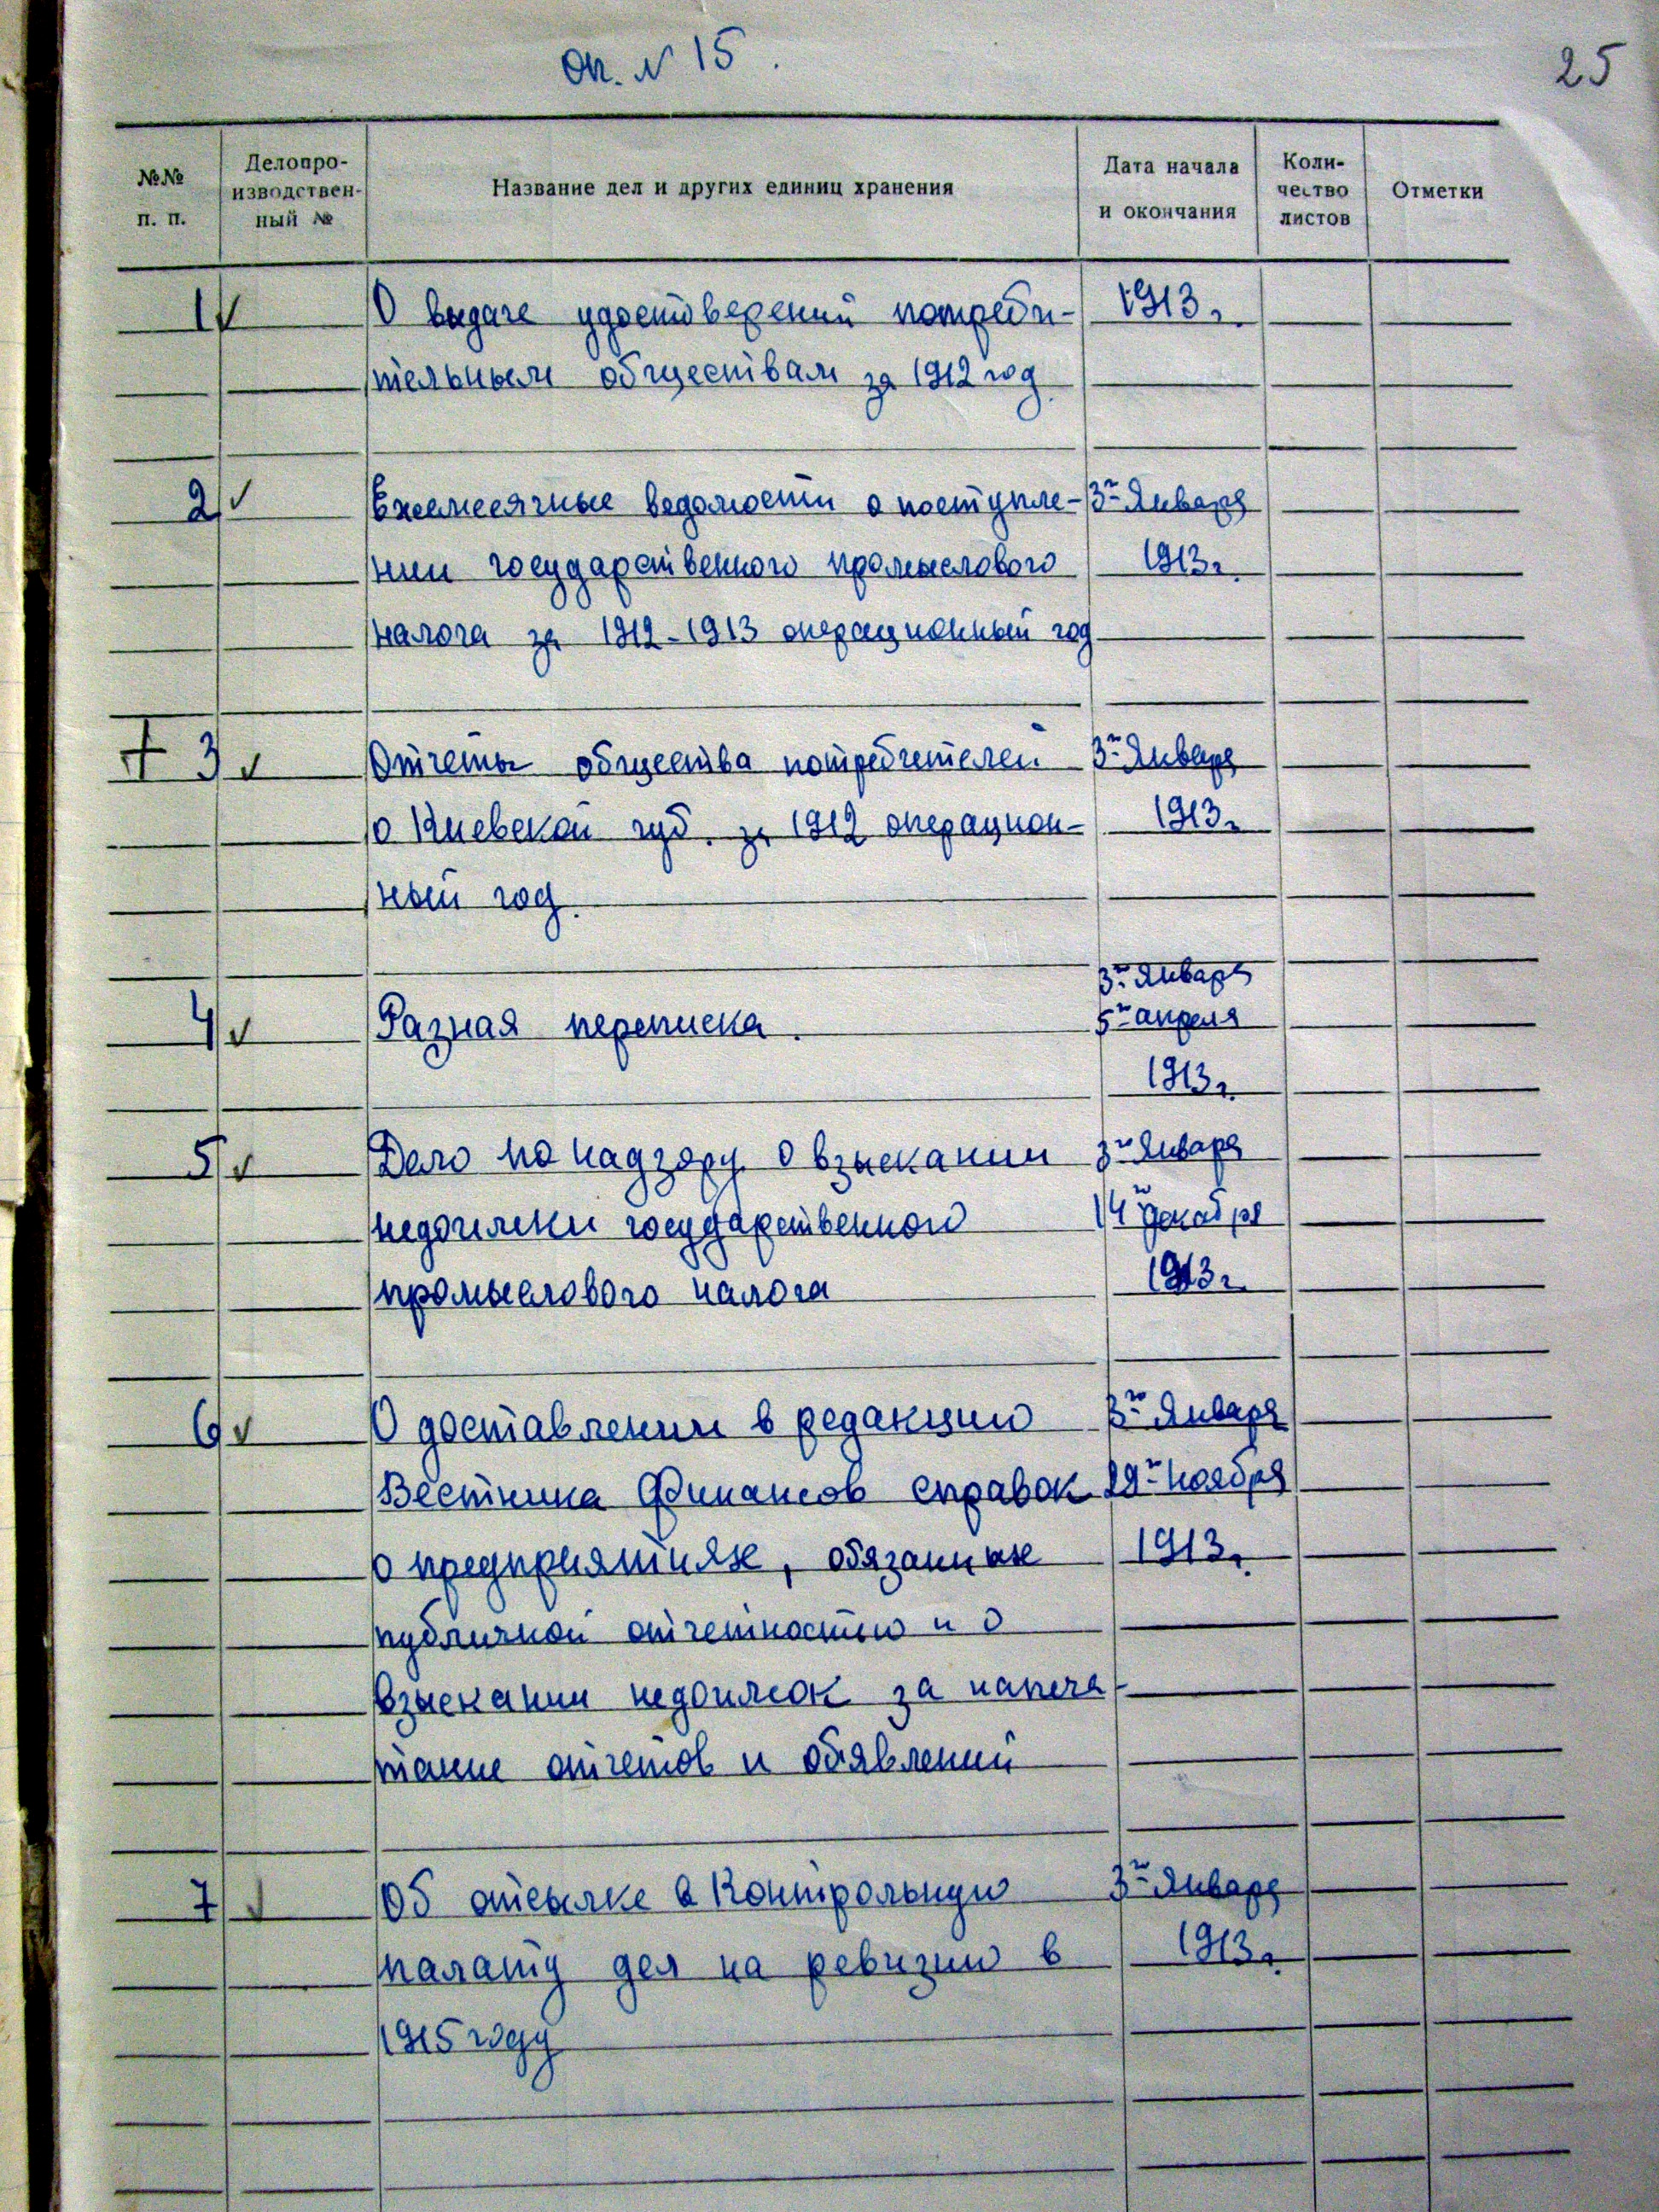 Оп. № 15.
25
№№ п. п.
Делопро-
изводствен-
ный №
Название дел и других единиц хранения
Дата начала
и окончания
Коли-
чество
листов
Отметки
1 ✓ О выдаче удостоверений потреби- 1913 г.
тельным обществам за 1912 год.
2 ✓ Ежемесячные ведомости о поступле- 3го Января
нии государственного промыслового 1913 г.
налога за 1912-1913 операционный год
+ 3 ✓ Отчеты общества потребителей 3го Января
о Киевской губ. за 1912 операцион- 1913 г.
ный год.
3го Января
4 ✓ Разная переписка. 5го апреля
1913 г.
5 ✓ Дело по надзору о взыскании 3го Января
недоимки государственного 14го декабря
промыслового налога 1913 г.
6 ✓ О доставлении в редакцию 3го Января
Вестника Финансов справок 29го Ноября
о предприятиях, обязанных 1913 г.
публичной отчетностью и о
взыскании недоимок за напеча-
тание отчетов и объявлений
7 ✓ Об отсылке в Контрольную 3го Января
палату дел на ревизию в 1913 г.
1915 году